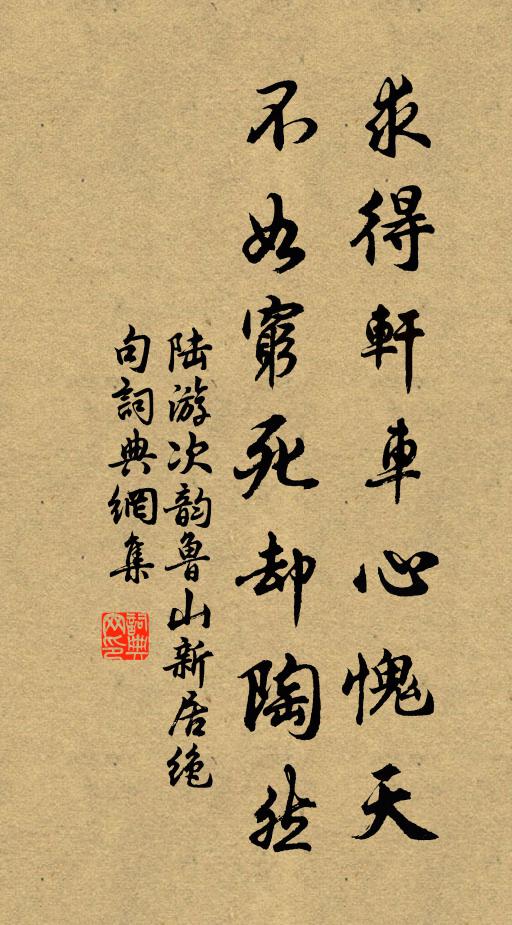 求得軒車心愧天
不如窮死却陶然
陆游次韵魯山新居绝
句詞典網集
詞典
网印